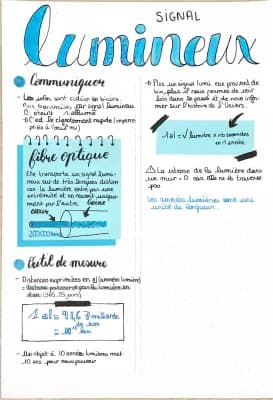 SIGNAL
Lumineux
Communiquer
- Les infos sont codées en binaire.
Puis transmises par signal lumineux
0: éteint 1: allumé
→ C'est le clignotement rapide (imperce-
ptible à l'oeil nu)
fibre optique
Elle transporte un signal lumi-
neux sur de très longues distan-
ces. La lumière entre par une
extrémité et en ressort unique-
ment par l'autre. Gaine
coeur
200 000 km
Outil de mesure
- Distances exprimées en al (années lumière)
= distance parcourue par la lumière en
1 an (365,25 jours)
1 al = 9,46 milliards
de km
= 10 km
- Un objet à 10 années lumières met
10 ans pour nous parvenir
- Plus un signal lumi. eux provient de
loin, plus il nous permet de voir
loin dans le passé et de nous infor-
mer sur l'histoire de l'Univers.
1 al = lumière x nb secondes
en 1 année
⚠ La vitesse de la lumière dans
un mur = 0 car elle ne le traverse
pas
Les années lumières sont une
unité de longueur.